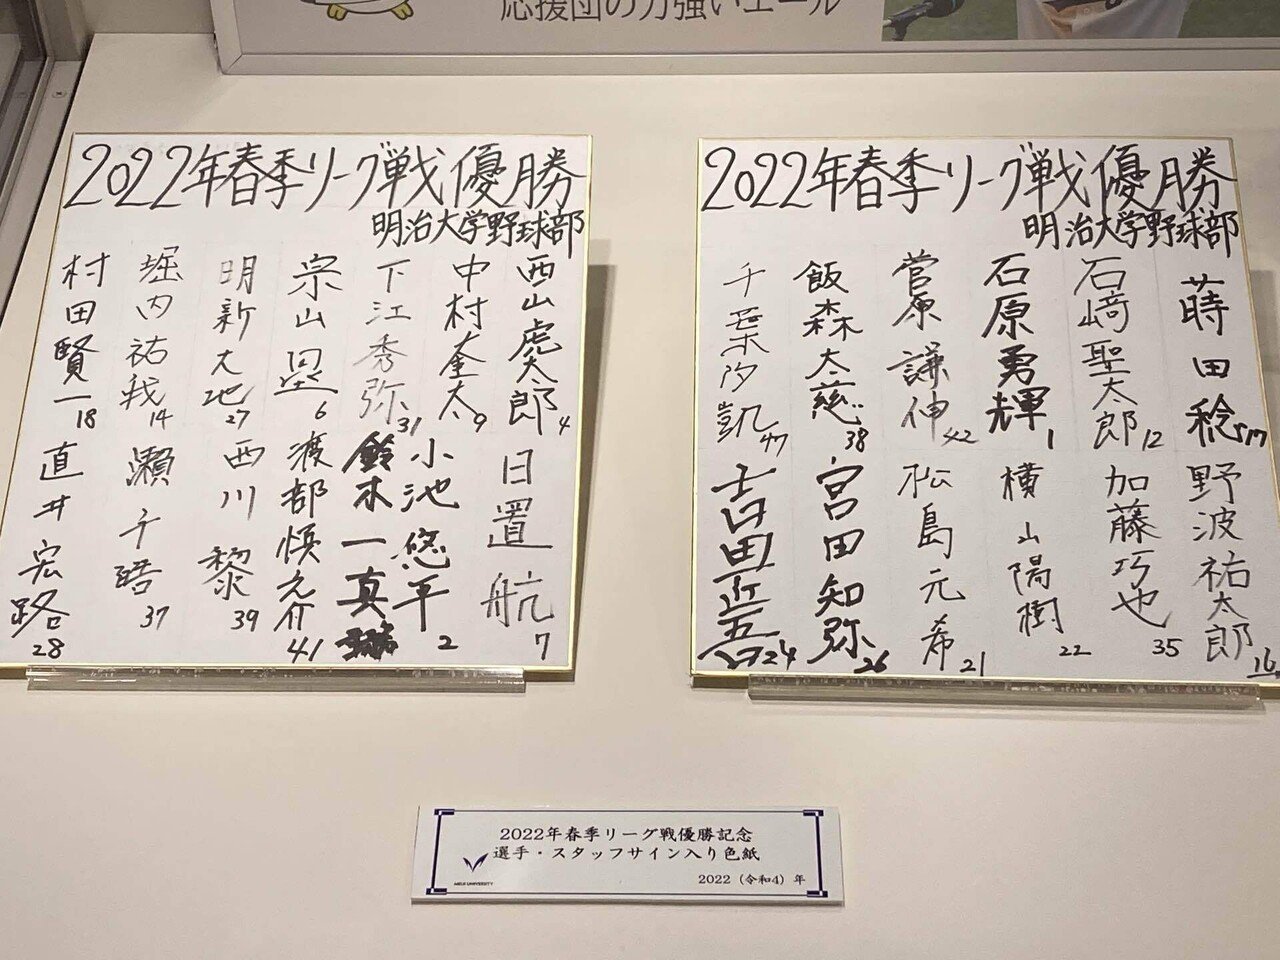 応援団の力強いエール
2022年春季リーグ戦優勝
明治大学野球部
西山虎太郎 4
中村奎太 9
下江秀弥 31
宗山塁 6
明新大地 27
堀内祐我 14
村田賢一 18
日置航 7
小池悠平 2
鈴木一真
渡部慎之介 41
西川黎 39
瀬千皓 37
直井宏路 28
2022年春季リーグ戦優勝
明治大学野球部
蒔田稔 17
石﨑聖太郎 12
石原勇輝 1
菅原謙伸 42
飯森太慈 38
千葉汐凱 47
野波祐太郎 16
加藤巧也 35
横山陽樹 22
松島元希 21
宮田知弥 26
吉田匠吾 24
2022年春季リーグ戦優勝記念
選手・スタッフサイン入り色紙
MEIJI UNIVERSITY
2022（令和4）年